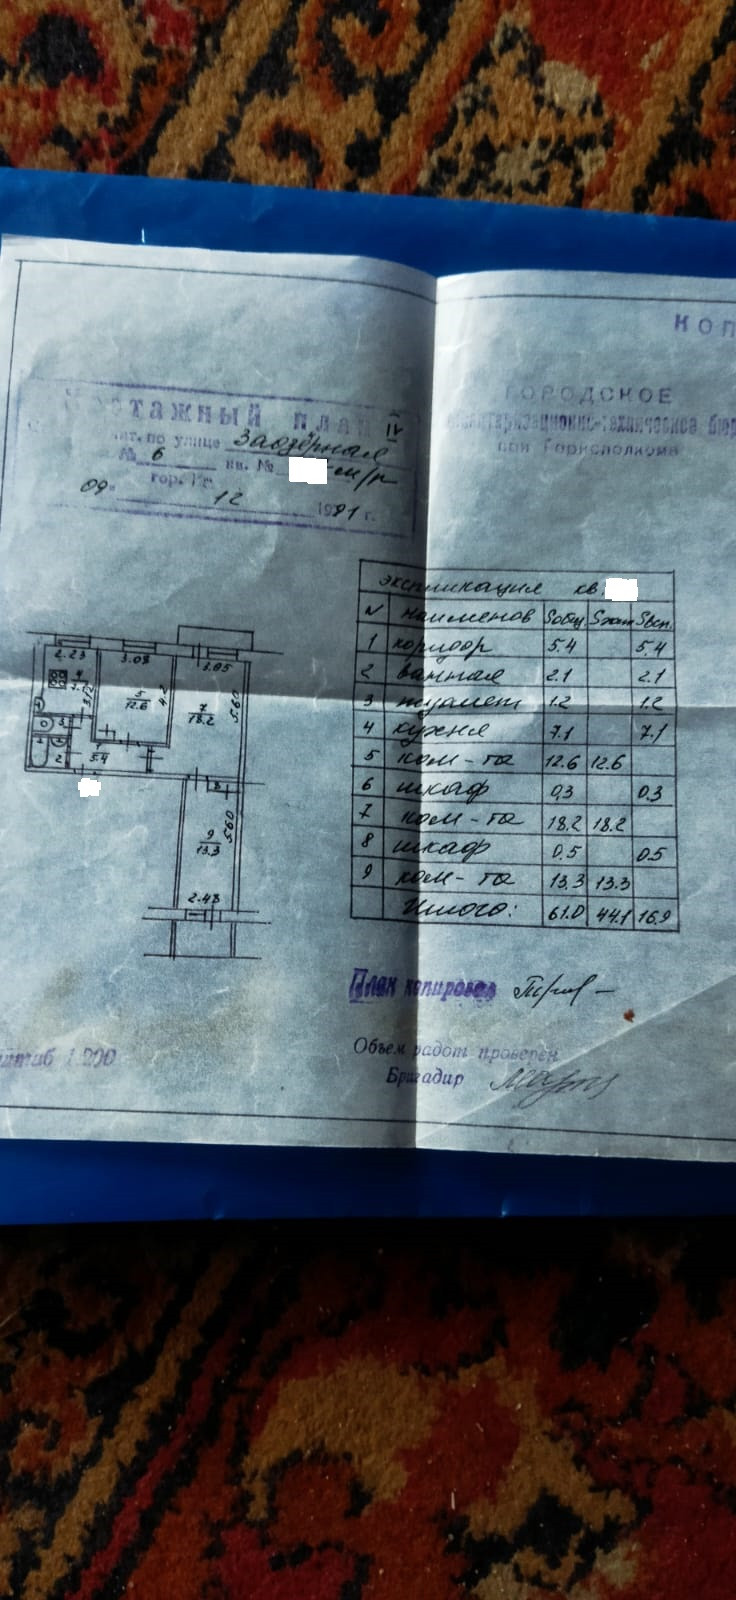 КОП
ГОРОДСКОЕ
инвентаризационно-техническое бюр
при Горисполкоме
Поэтажный план
IV
лит. по улице Заозёрная
№ 6 кв. № м/р
гор.
09 12 1991 г.
экспликация кв
N наименов Sобщ Sжил Sвсп.
1 коридор 5.4 5.4
2 ванная 2.1 2.1
3 туалет 1.2 1.2
4 кухня 7.1 7.1
5 ком-та 12.6 12.6
6 шкаф 0,3 0.3
7 ком-та 18.2 18.2
8 шкаф 0.5 0.5
9 ком-та 13.3 13.3
Итого: 61.0 44.1 16.9
2.23
3.08
3.05
4
7.1
3.12
5
12.6
4.2
7
18.2
5.60
3
6
1
5.4
2
8
9
13.3
5.60
2.48
План копировал
Объем работ проверен
Бригадир
штаб 1:200